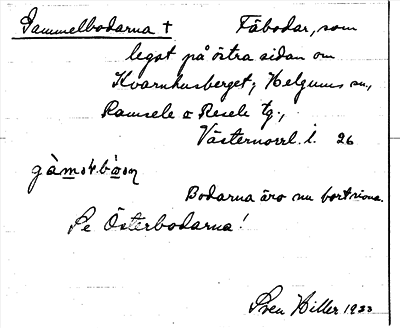 Gammelbodarna † Fäbodar, som
legat på östra sidan om
Kvarnhusberget, Helgums sn,
Ramsele o Resele tg.,
Västernorrl. l. 26
Bodarna äro nu bortrivna.
Se Österbodarna!
Sven Hiller 1933